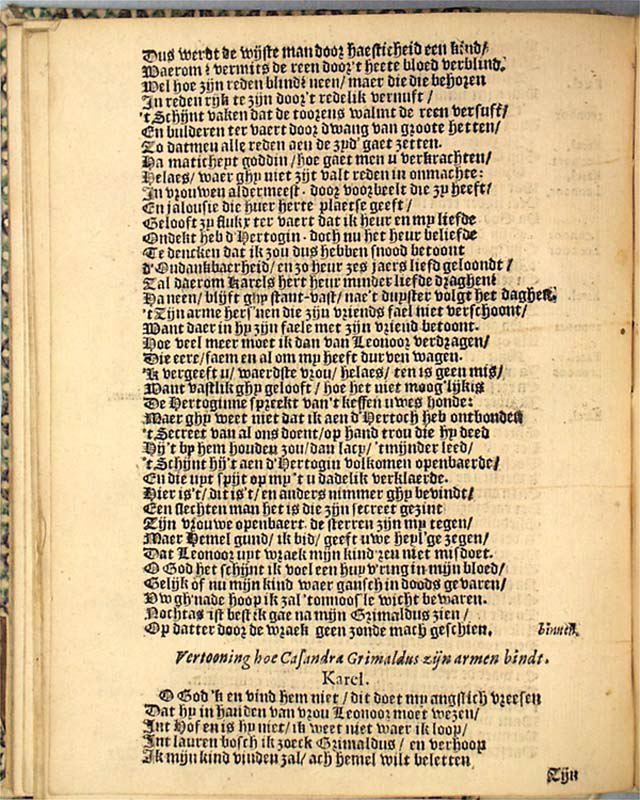 Dus werdt de wijste man door haesticheid een kind/
Waerom? vermits de reen door't heete bloed verblind.
Wel hoe zijn reden blind? neen/ maer die die behoren
In reden rijk te zijn door't redelik vernuft/
't Schijnt vaken dat de toorens walmt de reen versuft/
En bulderen ter vaert door dwang van groote hetten/
Zo datmen alle reden aen de zyd' gaet zetten.
Ha maticheyt goddin/ hoe gaet men u verkrachten/
Helaes/ waer ghy niet zijt valt reden in onmachte:
In vrouwen aldermeest. door voorbeelt die zy heeft/
En jalousie die huer herte plaetse geeft/
Gelooft zy flukx ter vaert dat ik heur en my liefde
Ondekt heb d'Hertogin. doch nu het heur beliefde
Te dencken dat ik zou dus hebben snood betoont
d'Ondankbaerheid/ en zo heur zes jaers liefd geloondt/
Zal daerom Karels hert heur minder liefde draghen?
Ha neen/ blijft ghy stant-vast/ nae't duyster volgt het daghen.
't Zijn arme hers'nen die zijn vriends fael niet verschoont/
Want daer in hy zijn faele met zijn vriend betoont.
Hoe veel meer moet ik dan van Leonoor verdragen/
Die eere/ faem en al om my heeft durven wagen.
'k vergeeft u/ waerdste vrou/ helaes/ ten is geen mis/
Want vastlik ghy gelooft/ hoe het niet moog'lijk is
De Hertoginne spreekt van't keffen uwes honds:
Maer ghy weet niet dat ik aen d'Hertoch heb ontbonden
't Secreet van al ons doent/ op hand trou die hy deed
Hy't by hem houden zou/ dan lacy/ 'tmijnder leed/
't Schijnt hy't aen d'Hertogin volkomen openbaerde/
En die uyt spijt op my 't u dadelik verklaerde.
Hier is't/ dit is't/ en anders nimmer ghy bevindt/
Een slechten man het is die zijn secreet gezint
Zijn vrouwe openbaert. de sterren zijn my tegen/
Maer Hemel gund/ ik bid/ geeft uwe heyl'ge zegen/
Dat Leonoor uyt wraek mijn kind'ren niet misdoet.
O God het schijnt ik voel een huyv'ring in mijn bloed/
Gelijk of nu mijn kind waer gansch in doods gevaren/
Uw gh'nade hoop ik zal 'tonnoos'le wicht bewaren.
Nochtas ist best ik gae na mijn Grimaldus zien/
Op datter door de wraek geen zonde mach geschien. binnen.
Vertooning hoe Casandra Grimaldus zijn armen bindt.
Karel.
O God 'k en vind hem niet/ dit doet my angstich vreesen
Dat hy in handen van vrou Leonoor moet wezen/
Int Hof en is hy niet/ ik weet niet waer ik loop/
Int lauren bosch ik zoeck Grimaldus/ en verhoop
Ik mijn kind vinden zal/ ach hemel wilt beletten
Zijn